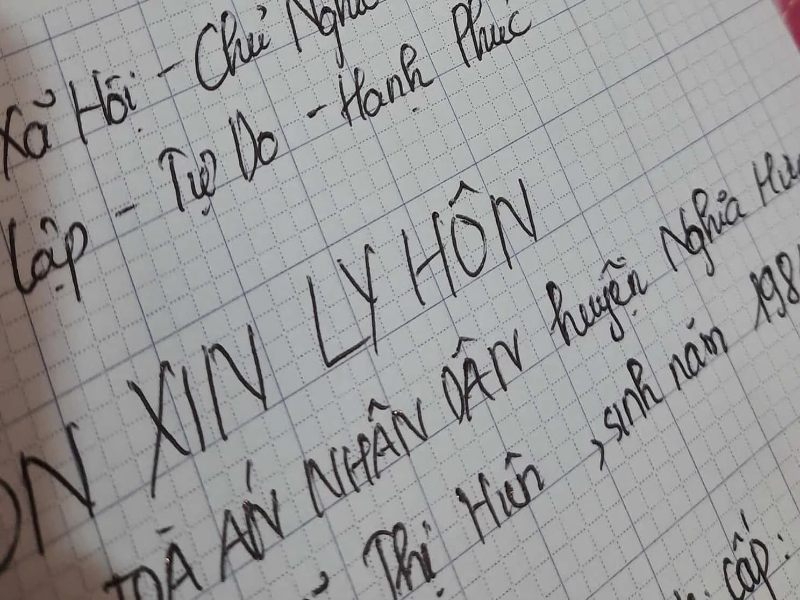 Xã Hội - Chủ Nghĩa
Lập - Tự Do - Hạnh Phúc
ĐƠN XIN LY HÔN
TOÀ ÁN NHÂN DÂN huyện Nghĩa Hư
Thị Hiền, sinh năm 198
cấp: